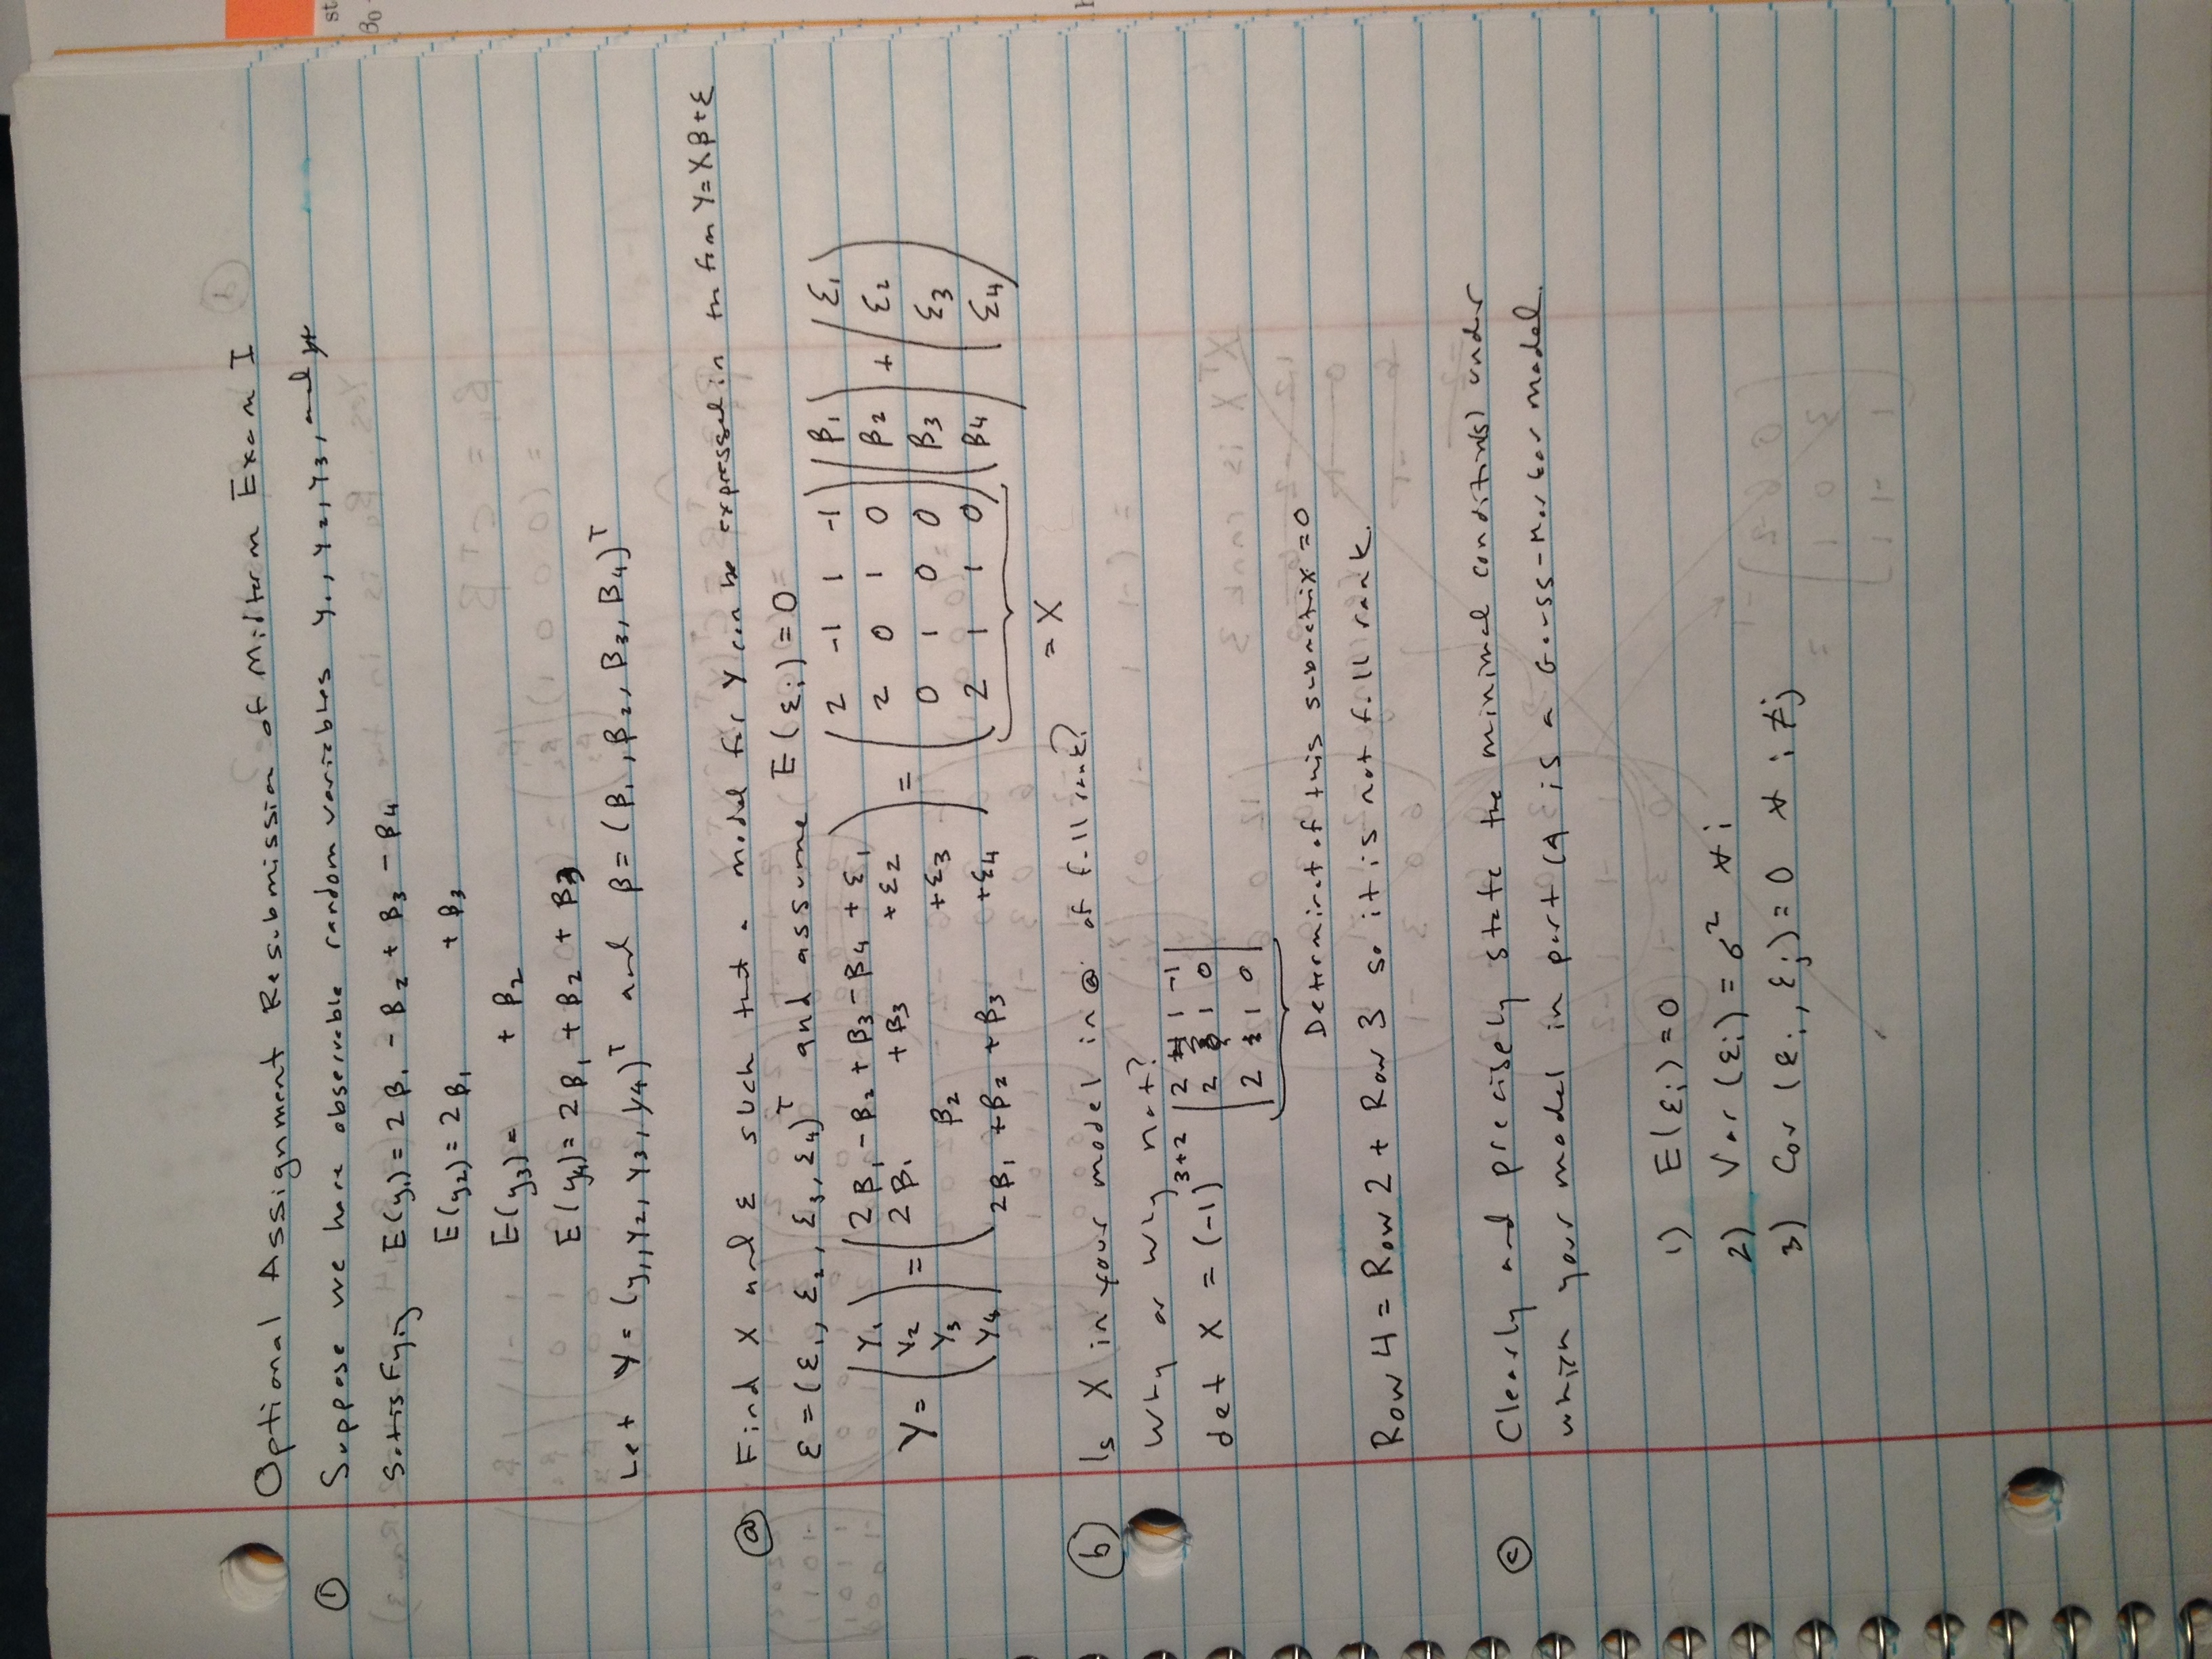 Optional Assignment Resubmission of Midterm Exam I
① Suppose we have observable random variables y₁, y₂, y₃, and y₄
Satisfying E(y₁) = 2β₁ - β₂ + β₃ - β₄
E(y₂) = 2β₁ + β₃
E(y₃) = + β₂
E(y₄) = 2β₁ + β₂ + β₃
Let Y = (y₁, y₂, y₃, y₄)ᵀ and β = (β₁, β₂, β₃, β₄)ᵀ
ⓐ Find X and ε such that a model for Y can be expressed in the form Y = Xβ + ε
ε = (ε₁, ε₂, ε₃, ε₄)ᵀ and assume E(εᵢ) = 0
Y₁ 2β₁ - β₂ + β₃ - β₄ + ε₁ 2 -1 1 -1 β₁ ε₁
Y = Y₂ = 2β₁ + β₃ + ε₂ = 2 0 1 0 β₂ + ε₂
Y₃ β₂ + ε₃ 0 1 0 0 β₃ ε₃
Y₄ 2β₁ + β₂ + β₃ + ε₄ 2 1 1 0 β₄ ε₄
= X
ⓑ Is X in your model in ⓐ of full rank?
Why or why not?
det X = (-1)³⁺² | 2 1 -1 |
| 2 1 0 |
| 2 1 0 |
Determinat of this submatrix = 0
Row 4 = Row 2 + Row 3 so it is not full rank.
ⓒ Clearly and precisely state the minimal condition(s) under
which your model in part (a is a Gauss-Markov model.
1) E(εᵢ) = 0
2) Var(εᵢ) = σ² ∀ i
3) Cov(εᵢ, εⱼ) = 0 ∀ i ≠ j
st
β₀